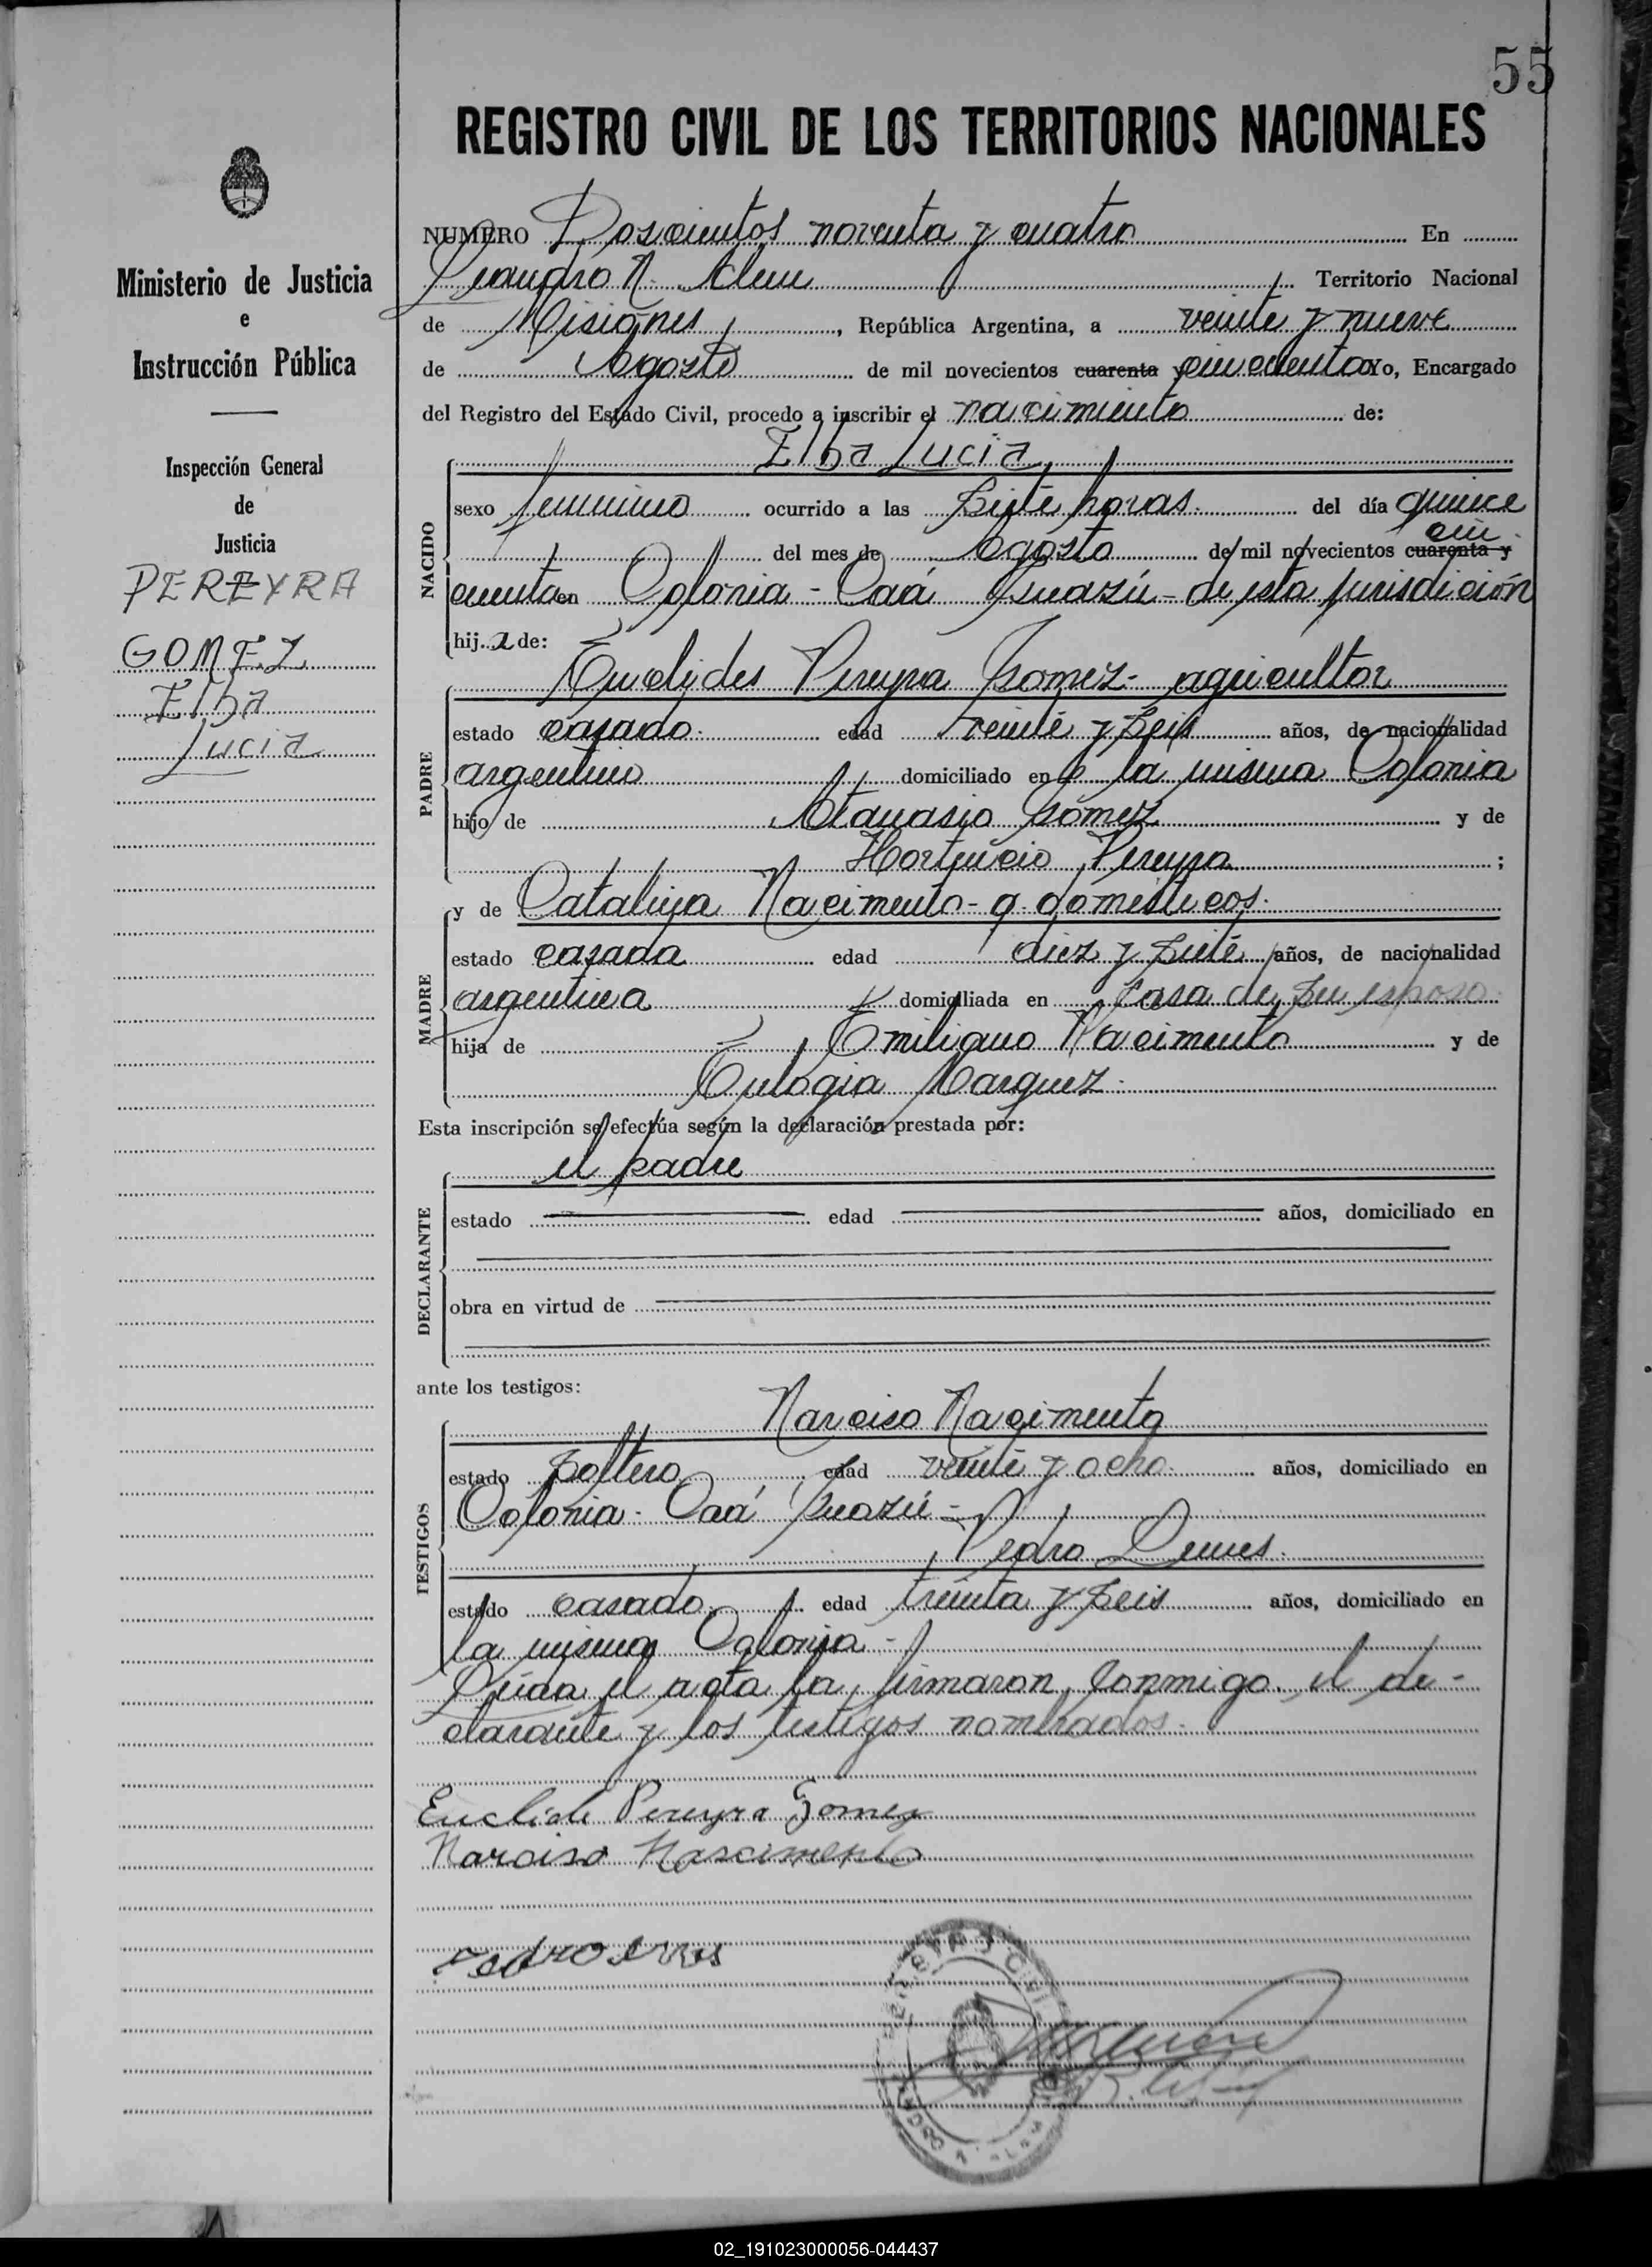 55
REGISTRO CIVIL DE LOS TERRITORIOS NACIONALES
Ministerio de Justicia
e
Instrucción Pública
Inspección General
de
Justicia
PEREYRA
GOMEZ
Elba
Lucia
NUMERO Doscientos noventa y cuatro En
Leandro N. Alem Territorio Nacional
de Misiones, República Argentina, a veinte y nueve
de Agosto de mil novecientos cuarenta y cincuenta Yo, Encargado
del Registro del Estado Civil, procedo a inscribir el nacimiento de:
Elba Lucia
NACIDO
sexo femenino ocurrido a las siete horas. del día quince
del mes de Agosto de mil novecientos cuarenta y cin
cuenta en Colonia - Caá Guazú - de esta jurisdicción
hij a de:
PADRE
Euclides Pereyra Gomez - agricultor
estado casado. edad veinte y seis años, de nacionalidad
argentino domiciliado en la misma Colonia
hijo de Atanasio Gómez y de
Pereyra ;
MADRE
y de Catalina Nacimento - q. domesticos.
estado casada edad diez y siete años, de nacionalidad
argentina domiciliada en casa de su esposo.
hija de Emiliano Nacimento y de
Eulogia Marquez.
Esta inscripción se efectúa según la declaración prestada por:
el padre
DECLARANTE
estado edad años, domiciliado en
obra en virtud de
ante los testigos:
TESTIGOS
Narciso Nacimento
estado soltero edad veinte y ocho. años, domiciliado en
Colonia - Caá Guazú -
Pedro
estado casado edad treinta y seis años, domiciliado en
la misma Colonia -
Leída el acta la firmaron conmigo el de-
clarante y los testigos nombrados.
Euclide Pereyra Gomez
Narciso Nascimento
Pedro
02_191023000056-044437